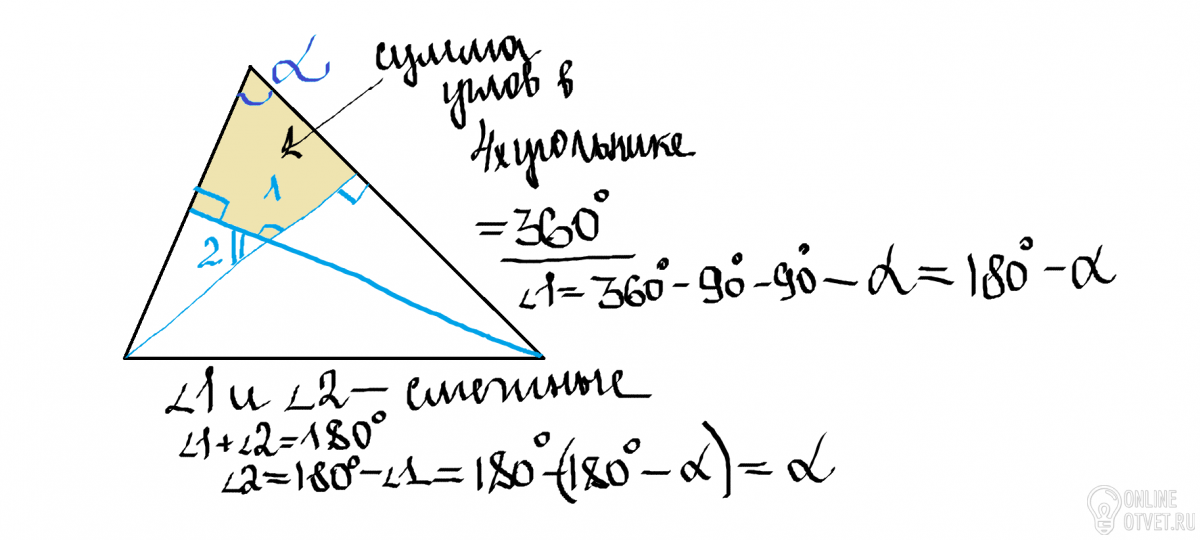 α
сумма
углов в
4хугольнике
= 360°
1
2
∠1 = 360° - 90° - 90° - α = 180° - α
∠1 и ∠2 - смежные
∠1 + ∠2 = 180°
∠2 = 180° - ∠1 = 180° - (180° - α) = α
ONLINE
OTVET.RU